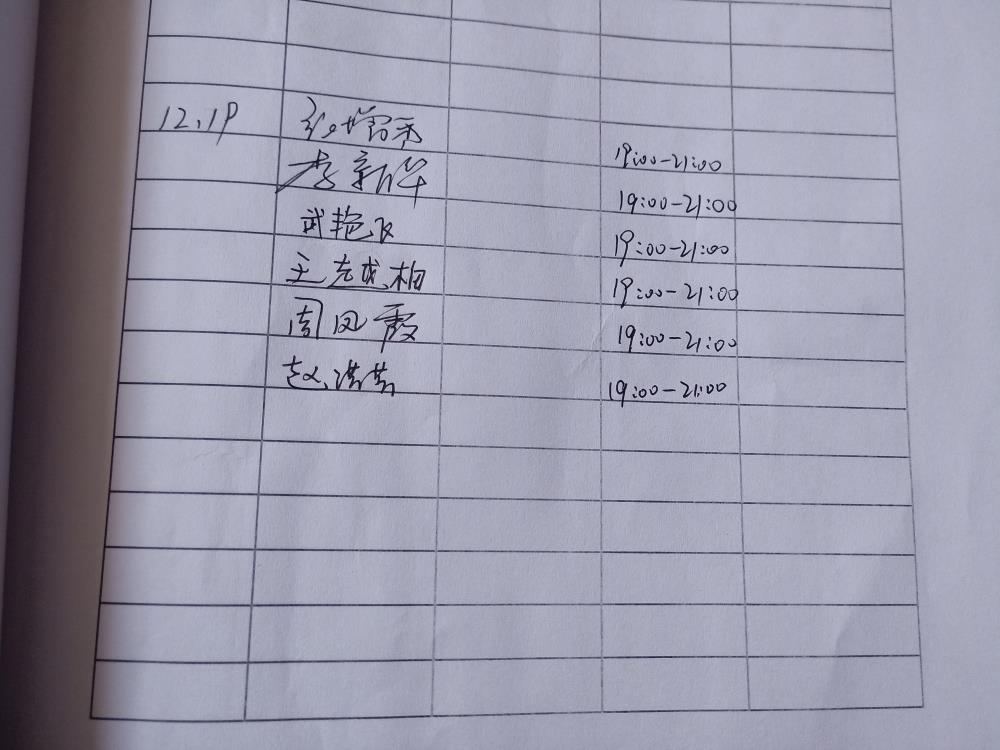 12.19
19:00-21:00
李新华 19:00-21:00
武艳飞 19:00-21:00
王志成 相 19:00-21:00
周凤霞 19:00-21:00
赵洪英 19:00-21:00